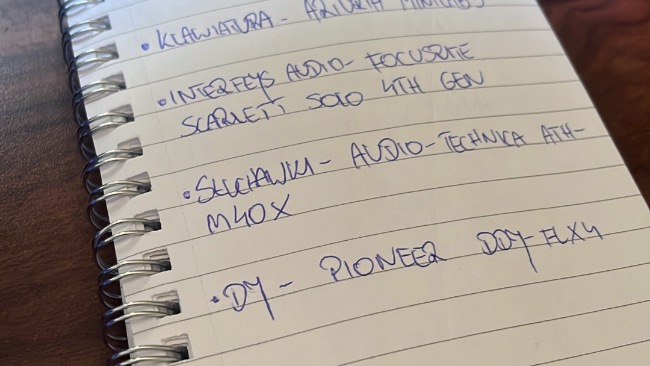 • KLAWIATURA - ARTURIA MINILAB 3
• INTERFEJS AUDIO - FOCUSRITE
SCARLETT SOLO 4TH GEN
• SŁUCHAWKI - AUDIO-TECHNICA ATH-
M40X
• DJ - PIONEER DDJ-FLX4